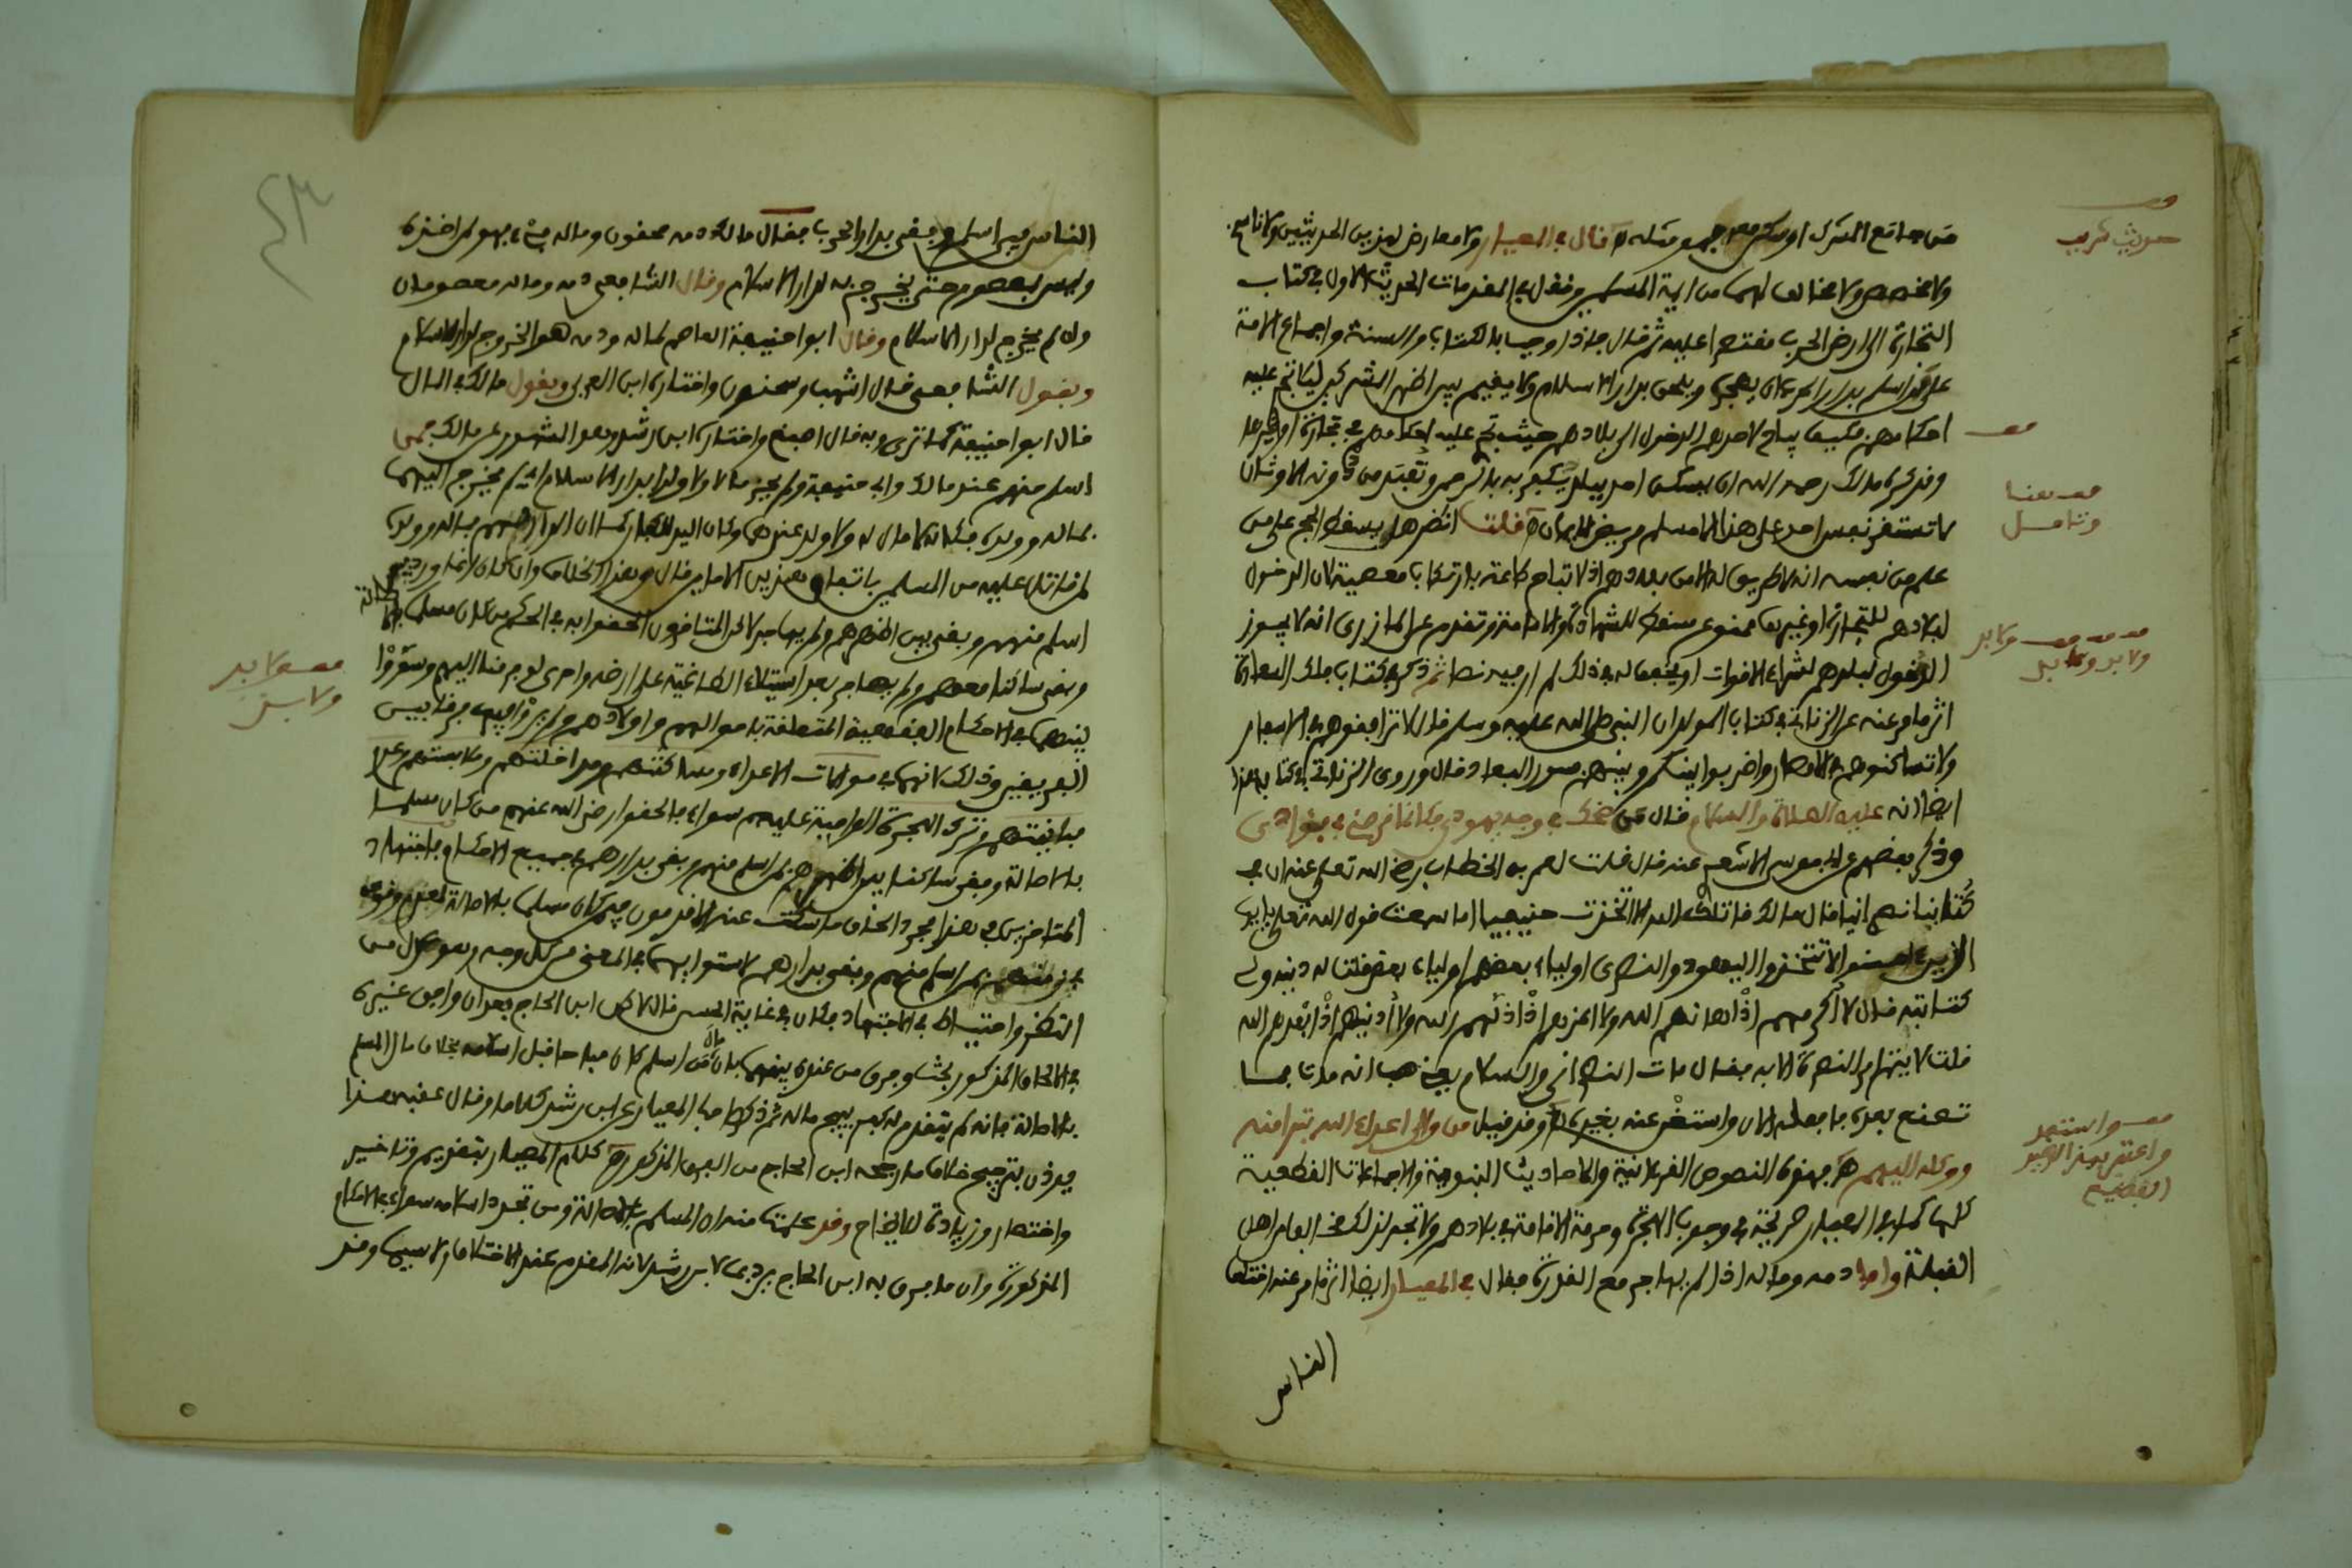 حديث كريب
من جامع المشرك او سكن معه فهو مثله قال في المعيار ولا معارض لهذين الحديثين ولا ناسخ
ولا مخصص ولا مخالف لهما من ايمة المسلمين ونقل في المقدمات الحديث الاول في كتاب
التجارة الى ارض الحرب مقتصرا عليه ثم قال فاذا وجب بالكتاب والسنة واجماع الامة
على من اسلم بدار الحرب ان يهجره ويلحق بدار الاسلام ولا يقيم بين اظهر المشركين ليلا تجري عليه
احكامهم فكيف يباح لاحد الدخول الى بلادهم حيث تجري عليه احكامهم في تجارة او غيرها
وقد كره مالك رحمه الله ان يسكن احد ببلد يكفر فيه بالرحمن وتعبد من دونه الاوثان
لا تستقر نفس احد على هذا الا مسلم مريض الايمان قلت انظر هل يسقط الحج على من
علم من نفسه انه لا طريق له الا من بلادهم اذ لا تباح طاعة بارتكاب معصية لان الدخول
لبلادهم للتجارة او غيرها ممنوع مسقط للشهادة والامامة وتقدم عن المازري انه لا يجوز
الدخول لبلدهم لشراء الاقوات او يخفف له في ذلك لم ار فيه نصا ثم ذكر في كتاب ملك السعادة
اثر ما مر عنه عن الزناتي في كتاب المولد ان النبي صلى الله عليه وسلم قال لا ترافقوهم في الاسفار
ولا تساكنوهم في الامصار واضربوا بينكم وبينهم سور البعاد قال وروى الزناتي في كتابه هذا
ايضا انه عليه الصلاة والسلام قال من ضحك في وجه يهودي فكانما
وذكر بعضهم عن ابي موسى الاشعري عنه قال قلت لعمر بن الخطاب رضي الله تعلى عنه ان في
كتابنا نصرانيا قال مالك قاتلك الله الا اتخذت حنيفيا اما سمعت قول الله تعلى يايها
الذين ءامنوا لا تتخذوا اليهود والنصرى اولياء بعضهم اولياء بعض قلت له دينه ولي
كتابته قال لا اكرمهم اذ اهانهم الله ولا اعزهم اذ اذلهم الله ولا ادنيهم اذ ابعدهم الله
قلت لا يتم امر البصرة الا به فقال مات النصراني والسلام يعني هب انه مات فما
تصنع بعده فافعله الان واستغن عنه بغيره وقد قيل من والى اعداء الله تبرا منه
ووكله اليهم فهذه النصوص القرءانية والاحاديث النبوية والاجماعات القطعية
كلها كما في المعيار صريحة في وجوب الهجرة وحرمة الاقامة في بلادهم ولا تجد لذلك مخالفا من اهل
القبلة واما دمه وماله اذا لم يهاجر مع القدرة فقال في المعيار ايضا اثر ما مر عنه اختلف
الناس
الناس فيمن اسلم وبقي بدار الحرب فقال مالك دمه محقون وماله فيء فهو لمن اخذه
وليس بمعصوم حتى يخرج به لدار الاسلام وقال الشافعي دمه وماله معصومان
وان لم يخرج لدار الاسلام وقال ابو حنيفة العاصم لماله ودمه هو الخروج لدار الاسلام
وبقول الشافعي قال اشهب وسحنون واختاره ابن العربي وبقول مالك في المال
قال ابو حنيفة كما ترى وبه قال اصبغ واختاره ابن رشد وهو المشهور عن مالك فمن
اسلم منهم عند مالك وابي حنيفة ولم يحز مالا ولا ولدا بدار الاسلام لم يخرج اليها
بماله وولده فكانه لا مال له ولا ولد عندهما وكان اليد للكفار كما ان الدار لهم فماله وولده
لمن قاتل عليه من المسلمين باتفاق هذين الامامين قال وهذا الخلاف وان كان انما ورد فيمن
اسلم منهم وبقي بين اظهرهم ولم يهاجر لاكن المتاخرون الحقوا به في الحكم من كان مسلما بالاصالة
وبقي ساكنا معهم ولم يهاجر بعد استيلاء الطاغية على ارضه واجرى لعدم فنا اليهم وسووا
بينهما في الاحكام الفقهية المتعلقة باموالهم واولادهم ولم يروا فيها فرقا بين
الفريقين وذلك لانهما في موالات الاعداء ومساكنتهم ومداخلتهم وملابستهم وعدم
مباينتهم وترك الهجرة الواجبة عليهم سواء فالحقوا رضي الله عنهم من كان مسلما
بالاصالة وبقي ساكنا بين اظهرهم بمن اسلم منهم وبقي بدارهم في جميع الاحكام فاجتهاد
المتاخرين في هذا مجرد الحاق ما سكت عنه الاقدمون فيمن كان مسلما بالاصالة لعدم وقوعه
في زمنهم بمن اسلم منهم وبقي بدارهم لاستوايهما في المعنى من كل وجه وهو عدل من
النظر واحتياط في الاجتهاد فكان في غاية الحسن قال لاكن ابن الحاج بعد ان وافق غيره
في الالحاق المذكور بحث وفرق من عنده بينهما بان مال من اسلم كان مباحا قبل اسلامه بخلاف مال المسلم
بالاصالة فانه لم يتقدم له كفر يبيح ماله ثم ذكر صاحب المعيار عن ابن رشد كلاما وقال عقبه هذا
يوذن بترجيح خلاف ما رجحه ابن الحاج من الفرق المذكور كلام المعيار بتقديم وتاخير
واختصار وزيادة للايضاح وقد علمت منه ان المسلم بالاصالة ومن تجدد اسلامه سواء في الاحكام
المذكورة وان ما فرق به ابن الحاج يرد بما لابن رشد لانه المقدم عند الاختلاف لا سيما وقد